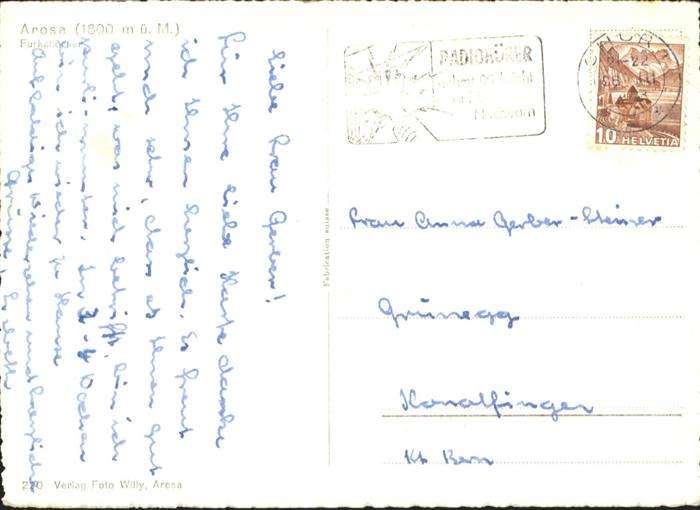 Arosa (1800 m ü. M.)
Furkahörner
Liebe Frau Gerber!
Für Ihre liebe Karte danke
ich Ihnen herzlich. Es freut
mich sehr, dass es Ihnen gut
geht, was mich betrifft, bin ich
munter. In 3-4 Wochen
bin ich wieder zu Hause
Auf baldiges Wiedersehen und herzliche
Grüsse
220 Verlag Foto Willy, Arosa
Fabrication suisse
RADIOHÖRER
CHUR
10 HELVETIA
Frau Anna Gerber-Steiner
Grünegg
Konolfingen
Kt Bern